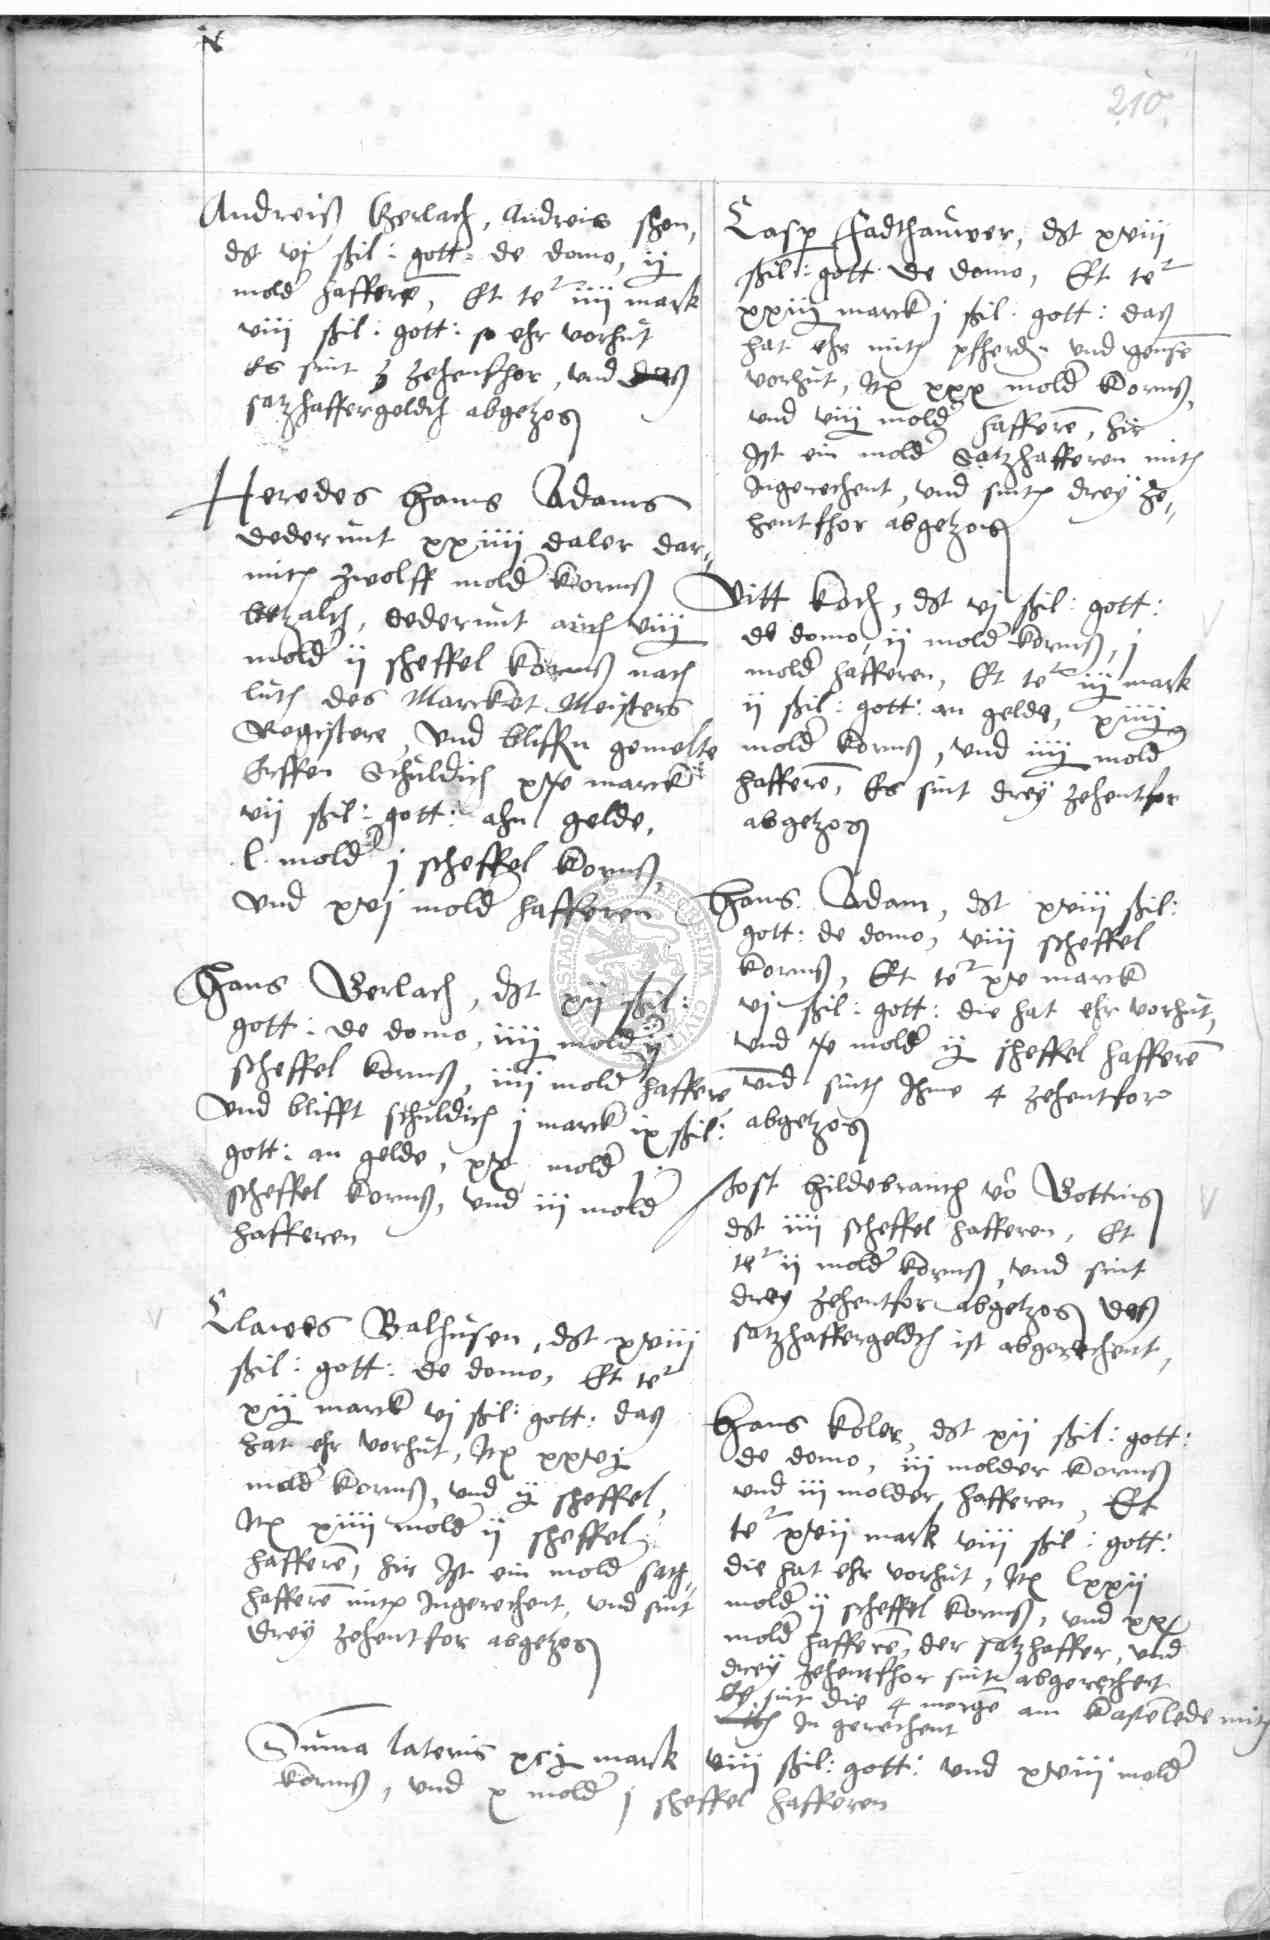 210
Andreis Gerlach, Andreis shon,
dt vj ßil: gott: de domo, ij
mold hafferē, Et te͛ iiij mark
viij ßil: gott: so ehr vorhut
Es sint 3 zehenfhor, und das
satzhaffergeldth abgetzog
Heredes Hans Adams
dederunt xxiiij daler dar,,
mith zwolff mold korns
betzalth, dederunt auch viij
mold ij scheffel korns nach
luth des Marcket Meisters
Registere, Und bliffen gemelte
Erffen schuldich marck
vij ßil: gott: ahn gelde,
l. mold j scheffel korns,
Und xvj mold hafferen
Hans Gerlach, dt xij ßil:
gott: de domo, iiij mold ij
scheffel korns, iiij mold hafferē
Und blifft schuldich j marck ix ßil:
gott: an gelde, mold j
scheffel korns, und iij mold
hafferen
Clawes Balhusen, dt xviij
ßil: gott: de domo, Et te͛
xij marck vj ßil: gott: das
hat ehr vorhut, Itz xxvj
mold korns, und ij scheffel,
Itz xiiij mold ij scheffel
hafferē, hir Ist ein mold satz,,
hafferē mith Ingerechent, und sint
drey zehentfor abgetzog
Casp Fadthauwer, dt xviij
ßil: gott: de domo, Et te͛
xxiij marck j ßil: gott: das
hat ehr mith pherdn und gensē
vorhut, Itz xxx mold korns,
und viij mold hafferē, hir
Ist ein mold Satzhafferen mith
Ingerechent, und sinth drey ze,,
hentfhor abgetzog
Vitt Koch, dt vj ßil: gott:
de domo, ij mold korns, j
mold hafferen, Et te͛ iij mark
ij ßil: gott: an gelde, xiiij
mold korns, und iiij mold
hafferē, Es sint drey zehentfor
abgetzog
Hans Adam, dt xviij ßil:
gott: de domo, viij scheffel
korns, Et te͛ xv marck
vj ßil: gott: die hat ehr vorhut,
und mold ij scheffel hafferē
und sinth Ihme 4 zehentfor
abgetzog
Jost Hildebranth vō Botting
dt iiij scheffel hafferen, Et
te͛ ij mold korns, und sint
drey zehentfor abgetzog des
satzhaffergeldth ist abgerechent,
Hans Koler, dt xij ßil: gott:
de domo, iij molder korns
und iij molder hafferen, Et
te͛ xvij mark viij ßil: gott:
die hat ehr vorhut, Itz lxxij
mold ij scheffel korns, und
mold hafferē, der satzhaffer, und
drey zehentfhor sint abgerechent
Es sint die 4 morgē am mith
In gerechent
Suma lateris xcij mark viij ßil: gott: und xviij mold
korns, und x mold j scheffel hafferen